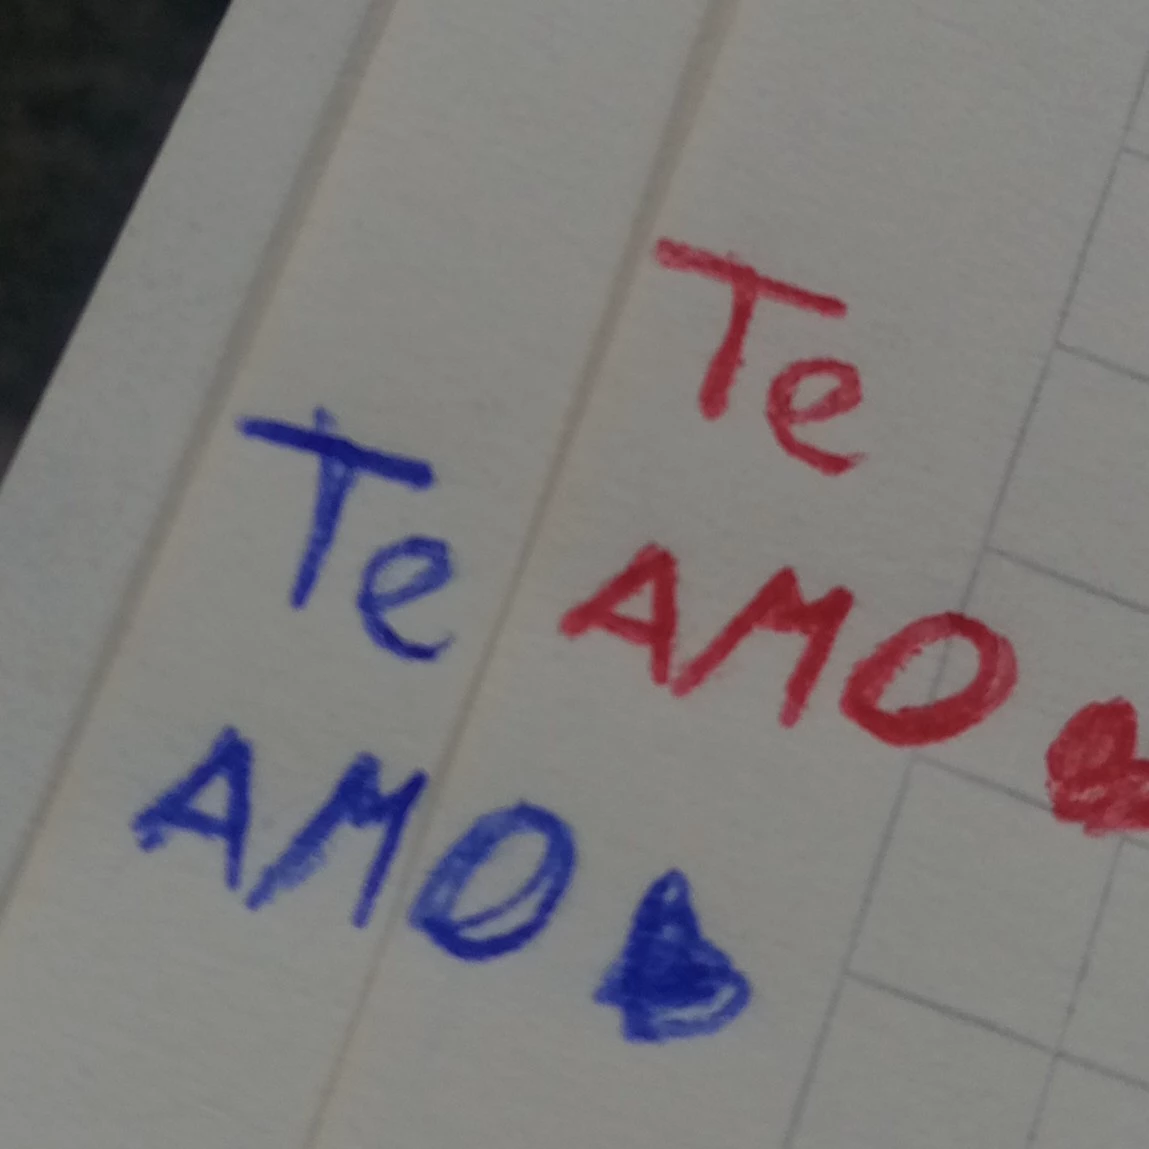 Te
AMO
Te
AMO